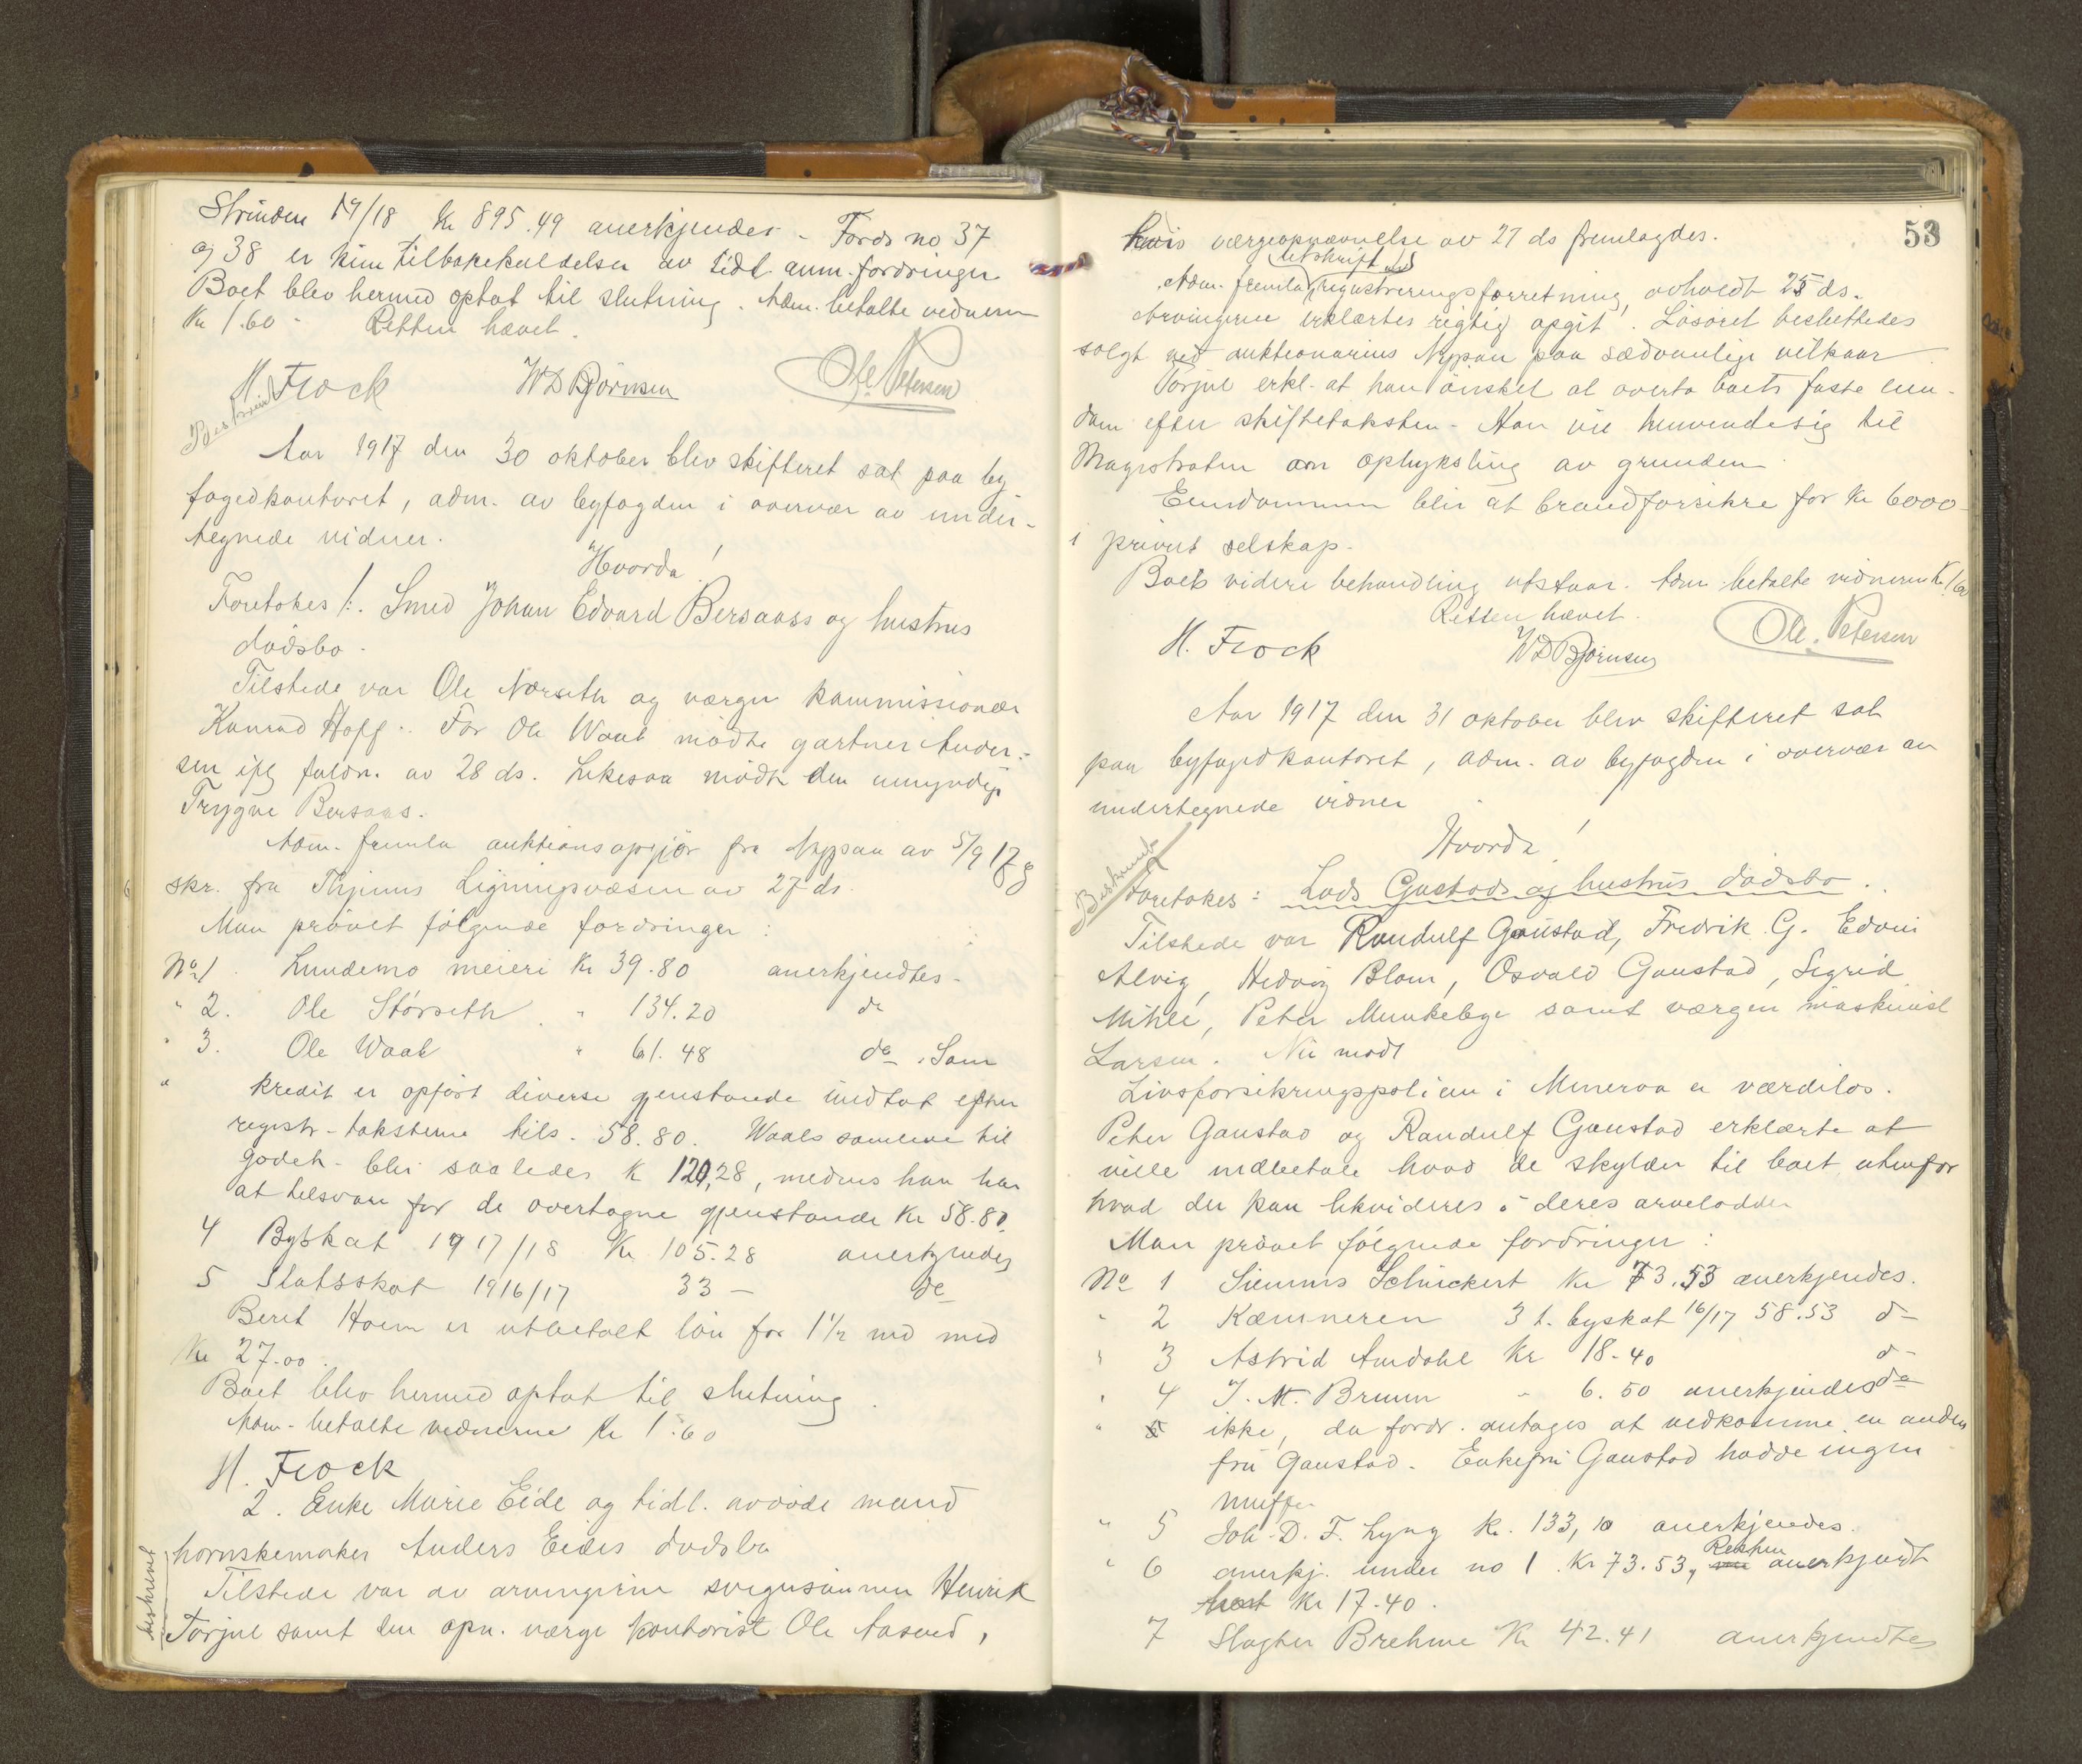 Strinden 17/18 Kr 895.49 anerkjendes - Fords no 37
og 38 er kun tilbakekaldelser av tidl. anm. fordringer.
Boet blev hermed optat til slutning. Adm. betalte vidnerne
Kr 1.60 - Retten hævet.
H. Frock W D Bjørnsen Ole Petersen
Beskrevet
Aar 1917 den 30 oktober blev skifteret sat paa by
fogedkontoret, adm. av byfogden i overvær av under-
tegnede vidner.
Hvorda!
Foretokes 1. Smed Johan Edvard Bersaas og hustrus
dødsbo.
Tilstede var Ole Nørseth og værgen kommissionær
Konrad Hoff. For Ole Waal mødte gartner Ander-
sen ifl fuldm. av 28 ds. Likesaa mødte den umyndige
Trygve Bersaas.
Adm. fremla auktionsopgjør fra Nypan av 5/9 17 og
skr. fra Thjems Ligningsvæsen av 27 ds.
Man prøvet følgende fordringer:
No 1. Lundemo meieri Kr 39.80 anerkjendtes -
" 2. Ole Størseth " 134.20 do
" 3. Ole Waal " 61.48 do. Som
" kredit er opført diverse gjenstande indtat efter
registr-taksterne tils. 58.80. Waals samlede til
godeh. blir saaledes K 120,28, medens han har
at tilsvare for de overtagne gjenstande Kr 58.80.
4 Byskat 1917/18 Kr 105.28 anerkjendes
5 Statsskat 1916/17 33 - do
Beret Hoem er utbetalt løn for 1 1/2 md med
Kr 27.00.
Boet blev hermed optat til slutning.
Adm. betalte vidnerne Kr 1.60
H. Frock
2. Enke Marie Eide og tidl. avdøde mand
hornskemaker Anders Eides dødsbo
Tilstede var av arvingerne svigersønnen Henrik
beskrevet
Torjul samt den opn. værge kontorist Ole Aasend,
53
hvis værgeopnævnelse av 27 ds fremlagdes.
utskrift av
Adm. fremla registreringsforretning, avholdt 25 ds.
Arvingerne erklærtes rigtig opgit. Løsøret besluttedes
solgt ved auktionarius Nypan paa sædvanlige vilkaar
Torjul erkl. at han ønsket at overta boets faste eien-
dom efter skiftetaksten. Han vil henvende sig til
Magistraten om opbyksling av grunden
Eiendommen blir at brandforsikre for Kr 6000 -
i privat selskap.
Boets videre behandling utstaar. Adm. betalte vidnerne Kr 1.60
Retten hævet.
H. Frock W D Bjørnsen Ole Petersen
Aar 1917 den 31 oktober blev skifteret sat
paa byfogedkontoret, adm. av byfogden i overvær av
undertegnede vidner
Hvorda!
Beskrevet
Foretokes: Lods Gaustads og hustrus dødsbo.
Tilstede var Randulf Gaustad, Fredrik G. Edvin
Alvig, Hedvig Blom, Osvald Gaustad, Sigrid
Mihle, Peter Munkeby samt værgen maskinist
Larsen. Nu mødt
Livsforsikringspolicen i Minerva er værdiløs.
Peter Gaustad og Randulf Gaustad erklærte at
ville indbetale hvad de skylder til boet utenfor
hvad der kan likvideres i deres arvelodder
Man prøvet følgende fordringer:
No 1 Siemens Schuckert Kr 73.53 anerkjendes.
" 2 Kæmneren 3 t. byskat 16/17 58.53 do
" 3 Astrid Amdahl Kr 18.40 do
" 4 J. M. Bruun " 6.50 anerkjendes do
" ikke, da fordr. antages at vedkomme en anden
fru Gaustad. Enkefru Gaustad hadde ingen
muffe
" 5 Joh. D. F. Lyng Kr. 133,10 anerkjendes.
" 6 anerkj. under no 1. Kr 73.53, Resten anerkjendt
Kr 17.40.
7 Slagter Brehme Kr 42.41 anerkjendtes